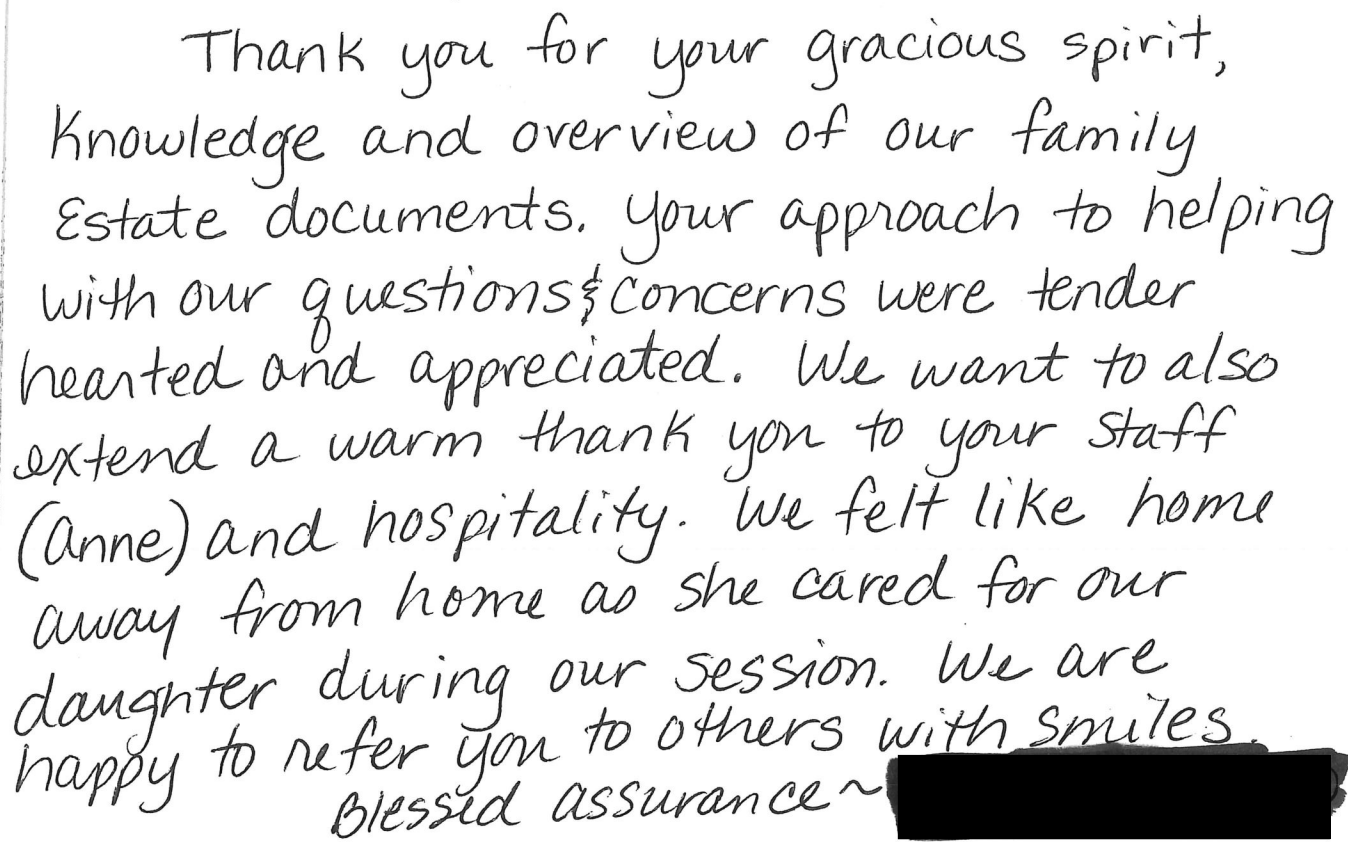 Thank you for your gracious spirit,
Knowledge and overview of our family
Estate documents. Your approach to helping
with our questions & concerns were tender
hearted and appreciated. We want to also
extend a warm thank you to your Staff
(Anne) and hospitality. We felt like home
away from home as she cared for our
daughter during our session. We are
happy to refer you to others with smiles.
Blessed assurance ~